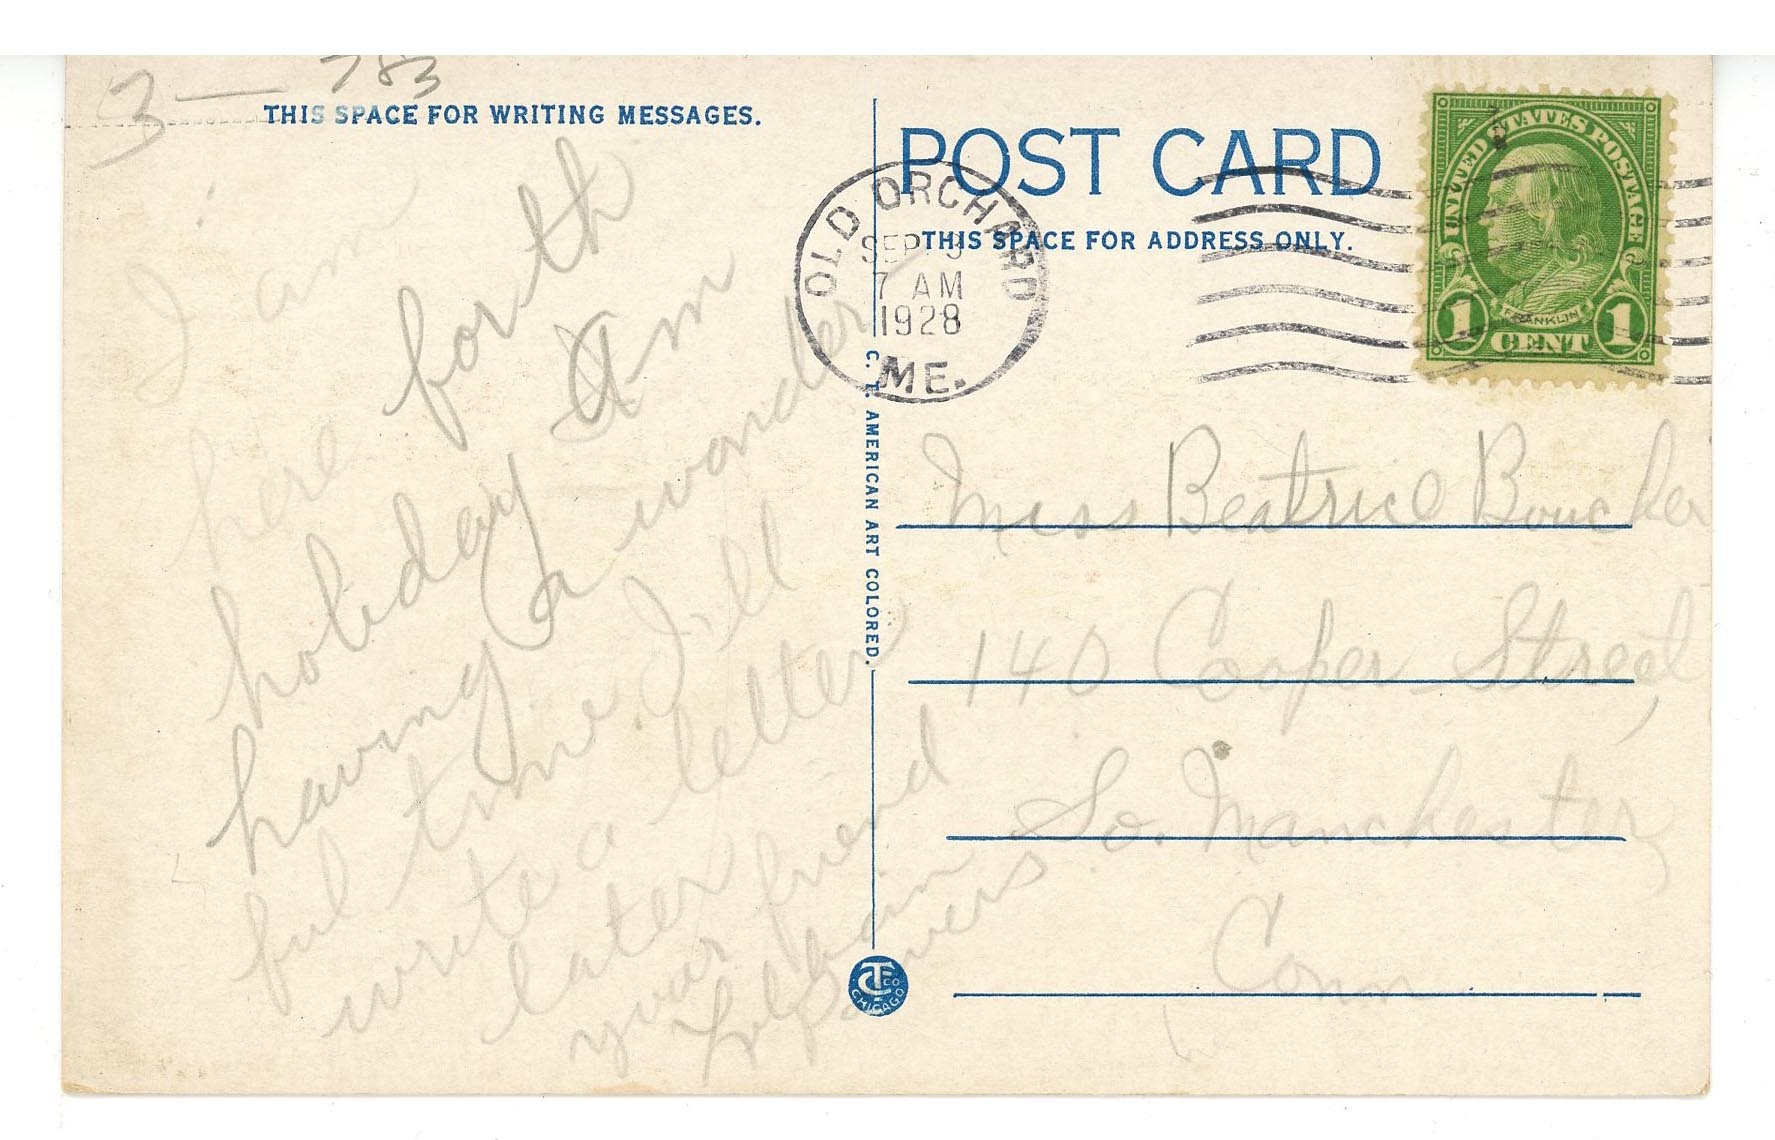 3 — 783
THIS SPACE FOR WRITING MESSAGES.
I am
here for th
holiday Am
having a wonder
ful time I'll
write a letter
later
your friend
POST CARD
THIS SPACE FOR ADDRESS ONLY.
OLD ORCHARD
SEP
7 AM
1928
ME.
UNITED STATES POSTAGE
FRANKLIN
1 CENT 1
Miss Beatrice
140 Cooper Street,
So. Manchester,
Conn
C. T. AMERICAN ART COLORED.
CT Co
CHICAGO